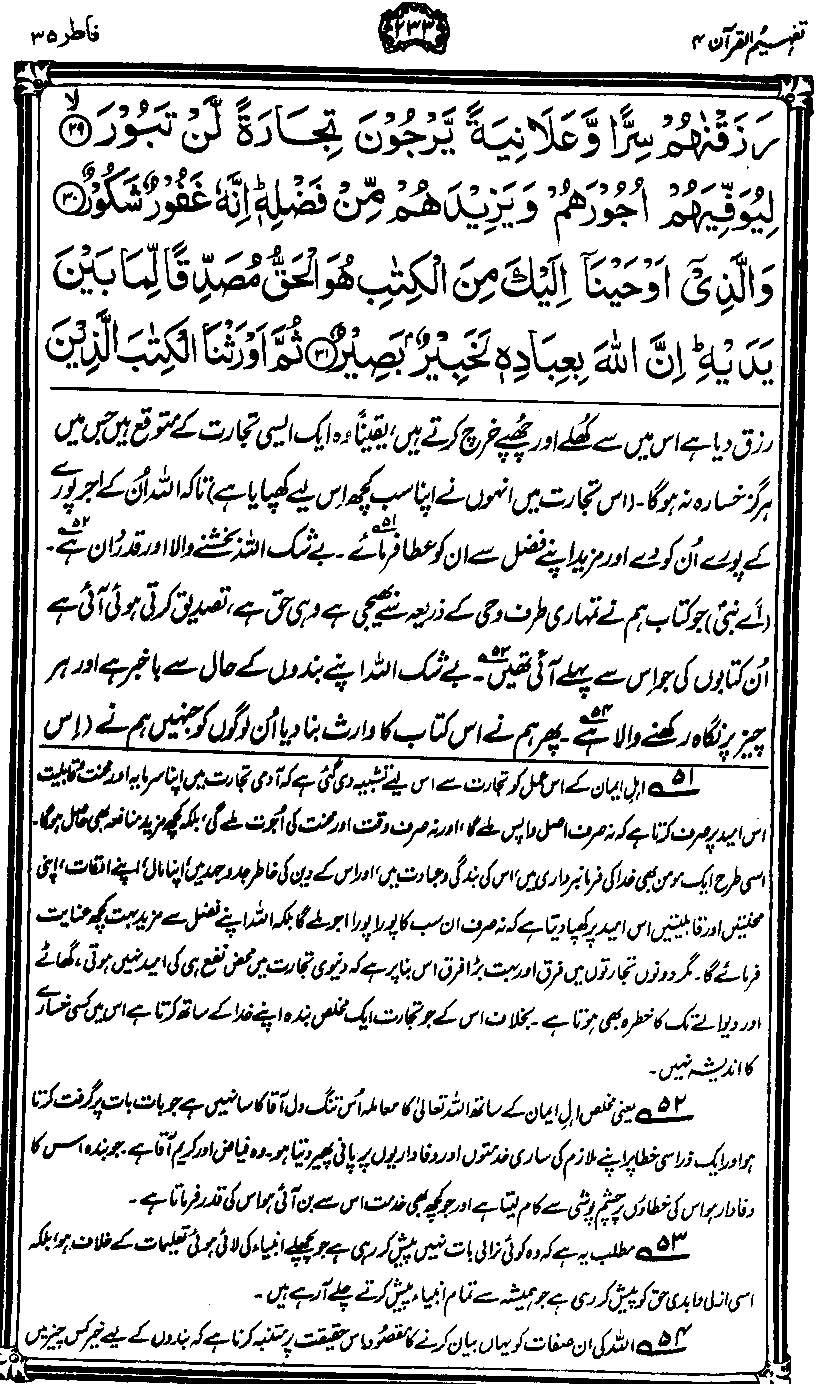 تفہیم القرآن ۴
۲۳۳
فاطر ۳۵
رَزَقْنٰهُمْ سِرًّا وَّعَلَانِيَةً يَّرْجُوْنَ تِجَارَةً لَّنْ تَبُوْرَ ﴿۲۹﴾ لا
لِيُوَفِّيَهُمْ اُجُوْرَهُمْ وَيَزِيْدَهُمْ مِّنْ فَضْلِهٖ ؕ اِنَّهٗ غَفُوْرٌ شَكُوْرٌ ﴿۳۰﴾
وَالَّذِيْٓ اَوْحَيْنَآ اِلَيْكَ مِنَ الْكِتٰبِ هُوَ الْحَقُّ مُصَدِّقًا لِّمَا بَيْنَ
يَدَيْهِ ؕ اِنَّ اللّٰهَ بِعِبَادِهٖ لَخَبِيْرٌۢ بَصِيْرٌ ﴿۳۱﴾ ثُمَّ اَوْرَثْنَا الْكِتٰبَ الَّذِيْنَ
رزق دیا ہے اس میں سے کھُلے اور چھُپے خرچ کرتے ہیں، یقیناً وہ ایک ایسی تجارت کے متوقع ہیں جس میں
ہرگز خسارہ نہ ہوگا۔ (اس تجارت میں انہوں نے اپنا سب کچھ اِس لیے کھپایا ہے) تاکہ اللہ اُن کے اجر پورے
کے پورے اُن کو دے اور مزید اپنے فضل سے ان کو عطا فرمائے۵۱۔ بے شک اللہ بخشنے والا اور قدردان ہے۵۲۔
(اَے نبیؐ) جو کتاب ہم نے تمہاری طرف وحی کے ذریعہ سے بھیجی ہے وہی حق ہے، تصدیق کرتی ہوئی آئی ہے
اُن کتابوں کی جو اس سے پہلے آئی تھیں۵۳۔ بے شک اللہ اپنے بندوں کے حال سے باخبر ہے اور ہر
چیز پر نگاہ رکھنے والا ہے۵۴۔ پھر ہم نے اس کتاب کا وارث بنا دیا اُن لوگوں کو جنہیں ہم نے (اِس
۵۱ اہلِ ایمان کے اس عمل کو تجارت سے اس لیے تشبیہ دی گئی ہے کہ آدمی تجارت میں اپنا سرمایہ اور محنت و قابلیت
اس امید پر صرف کرتا ہے کہ نہ صرف اصل واپس ملے گا، اور نہ صرف وقت اور محنت کی اُجرت ملے گی، بلکہ کچھ مزید منافعہ بھی حاصل ہوگا۔
اسی طرح ایک مومن بھی خدا کی فرمانبرداری میں، اس کی بندگی و عبادت میں، اور اس کے دین کی خاطر جدوجہد میں، اپنا مال، اپنے اوقات، اپنی
محنتیں اور قابلیتیں اس امید پر کھپا دیتا ہے کہ نہ صرف ان سب کا پورا پورا اجر ملے گا بلکہ اللہ اپنے فضل سے مزید بہت کچھ عنایت
فرمائے گا۔ مگر دونوں تجارتوں میں فرق اور بہت بڑا فرق اس بنا پر ہے کہ دنیوی تجارت میں محض نفع ہی کی امید نہیں ہوتی، گھاٹے
اور دیوالے تک کا خطرہ بھی ہوتا ہے۔ بخلاف اس کے جو تجارت ایک مخلص بندہ اپنے خدا کے ساتھ کرتا ہے اس میں کسی خسارے
کا اندیشہ نہیں۔
۵۲ یعنی مخلص اہلِ ایمان کے ساتھ اللہ تعالیٰ کا معاملہ اُس تنگ دل آقا کا سا نہیں ہے جو بات بات پر گرفت کرتا
ہو اور ایک ذرا سی خطا پر اپنے ملازم کی ساری خدمتوں اور وفاداریوں پر پانی پھیر دیتا ہو۔ وہ فیاض اور کریم آقا ہے۔ جو بندہ اس کا
وفادار ہو اس کی خطاؤں پر چشم پوشی سے کام لیتا ہے اور جو کچھ بھی خدمت اس سے بن آئی ہو اس کی قدر فرماتا ہے۔
۵۳ مطلب یہ ہے کہ وہ کوئی نرالی بات نہیں پیش کر رہی ہے جو پچھلے انبیاء کی لائی ہوئی تعلیمات کے خلاف ہو، بلکہ
اسی ازلی و ابدی حق کو پیش کر رہی ہے جو ہمیشہ سے تمام انبیاء پیش کرتے چلے آ رہے ہیں۔
۵۴ اللہ کی ان صفات کو یہاں بیان کرنے کا مقصُود اس حقیقت پر متنبہ کرنا ہے کہ بندوں کے لیے خیر کس چیز میں